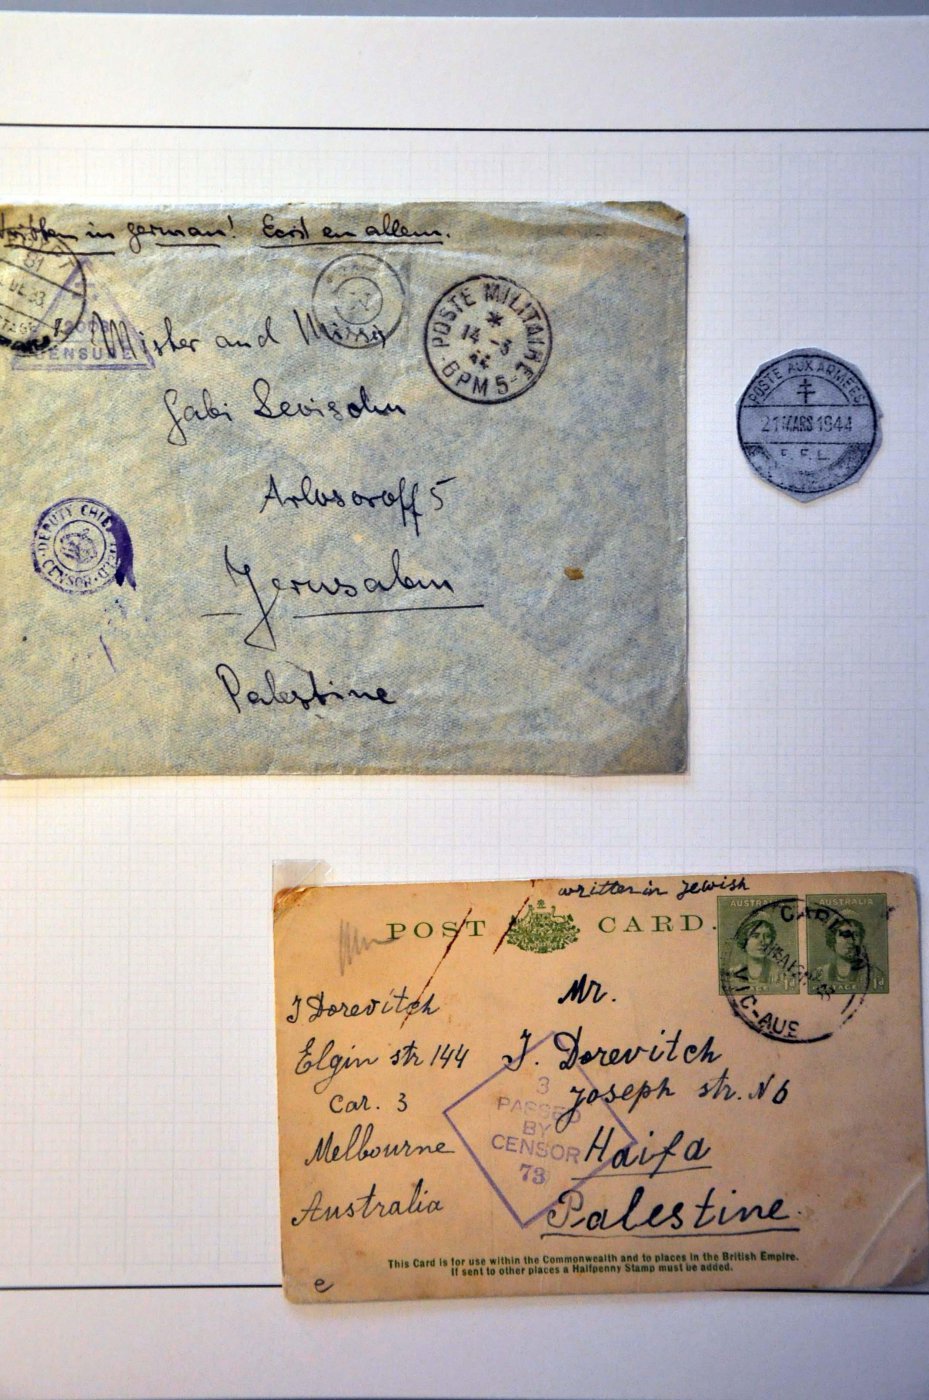 in german! Écrit en allem.
CENSURE
POSTE MILITAIRE
14 -3
44
GPM 5
Mister and Missis
Gabi Levisohn
Arlosoroff 5
Jerusalem
Palestine
DEPUTY CHIEF FIELD CENSOR
POSTE AUX ARMEES
21 MARS 1944
F. F. L.
written in Jewish
POST CARD.
AUSTRALIA
AUSTRALIA
1d
1d
VIC-AUS
J Dorevitch
Elgin str 144
Car. 3
Melbourne
Australia
Mr.
J. Dorevitch
Joseph str. N 6
Haifa
Palestine.
3
PASSED
BY
CENSOR
73
This Card is for use within the Commonwealth and to places in the British Empire.
If sent to other places a Halfpenny Stamp must be added.
e